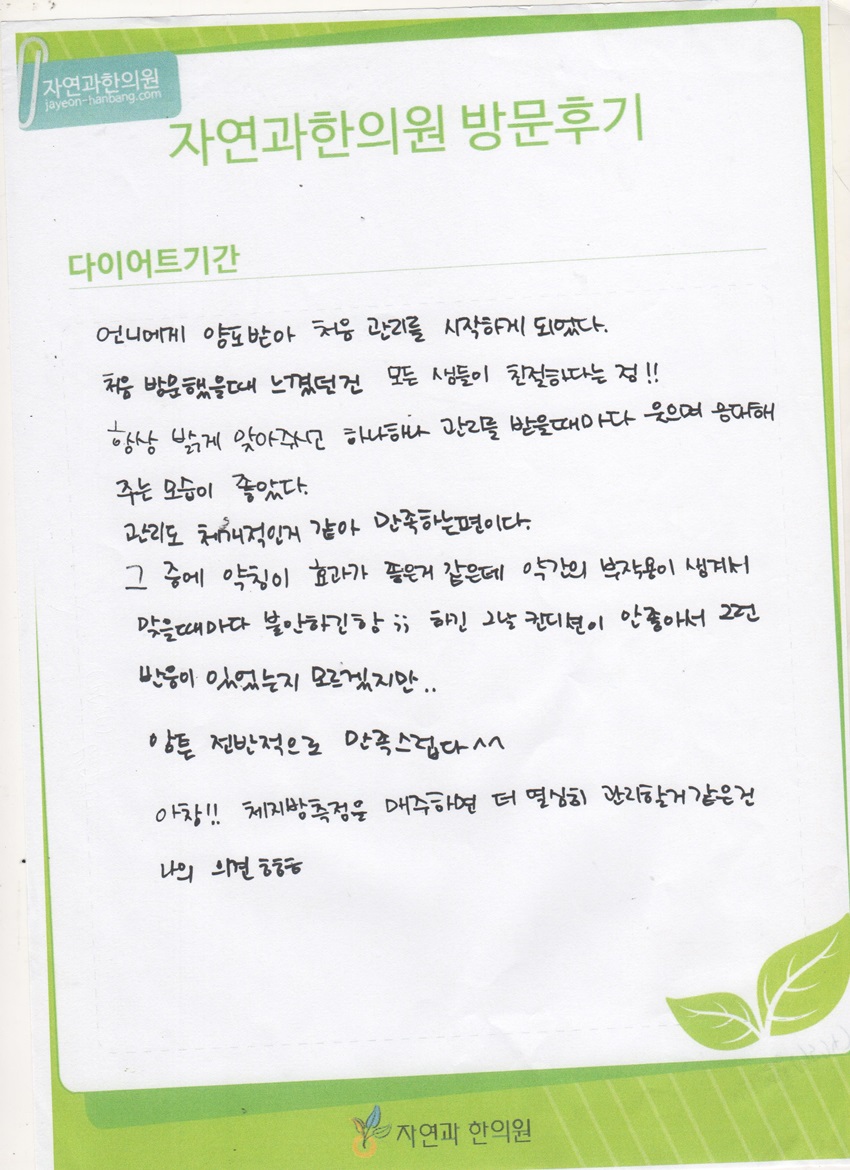 자연과한의원
jayeon-hanbang.com
자연과한의원 방문후기
다이어트기간
언니에게 양도받아 처음 관리를 시작하게 되었다.
처음 방문했을때 느꼈던건 모든 샘들이 친절하다는 점!!
항상 밝게 맞아주시고 하나하나 관리를 받을때마다 웃으며 응대해
주는 모습이 좋았다.
관리도 체계적인거 같아 만족하는편이다.
그 중에 약침이 효과가 좋은거 같은데 약간의 부작용이 생겨서
맞을때마다 불안하긴함 ;; 하긴 그날 컨디션이 안좋아서 그런
반응이 있었는지 모르겠지만..
암튼 전반적으로 만족스럽다^^
아참!! 체지방측정을 매주하면 더 열심히 관리할거같은건
나의 의견 ㅎㅎㅎ
자연과 한의원